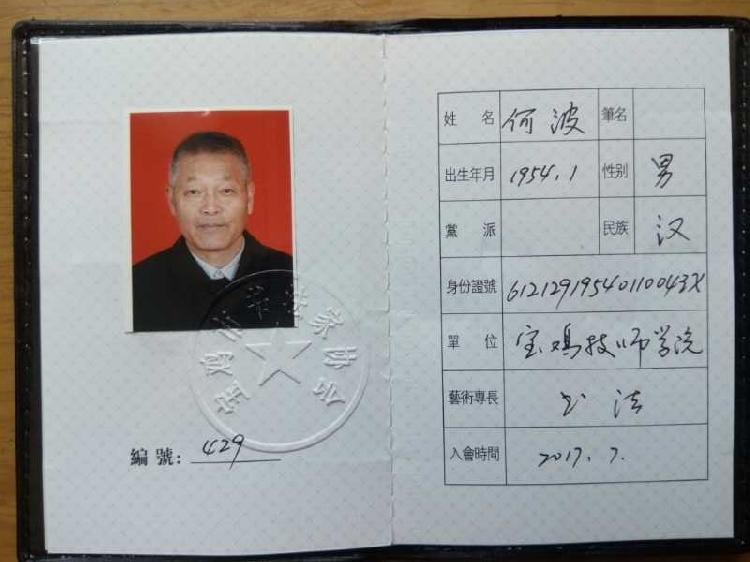 編號: 429
姓名 何波 筆名
出生年月 1954.1 性别 男
黨派 民族 汉
身份證號 61212919540110043X
單位 宝鸡技师学院
藝術專長 书法
入會時間 2017.7.